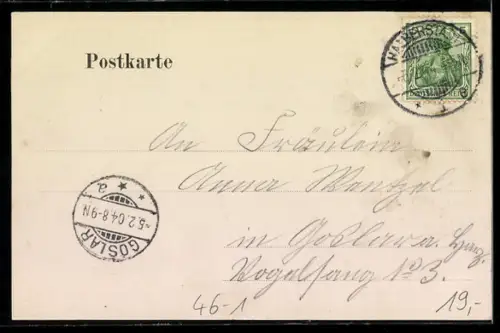 Postkarte
HALBERSTADT
An Fräulein
Anna Wentzel
in Goslar a. Harz
Vogelsang No 3.
GOSLAR
5.2.04 8-9N
a
46-1
19,-